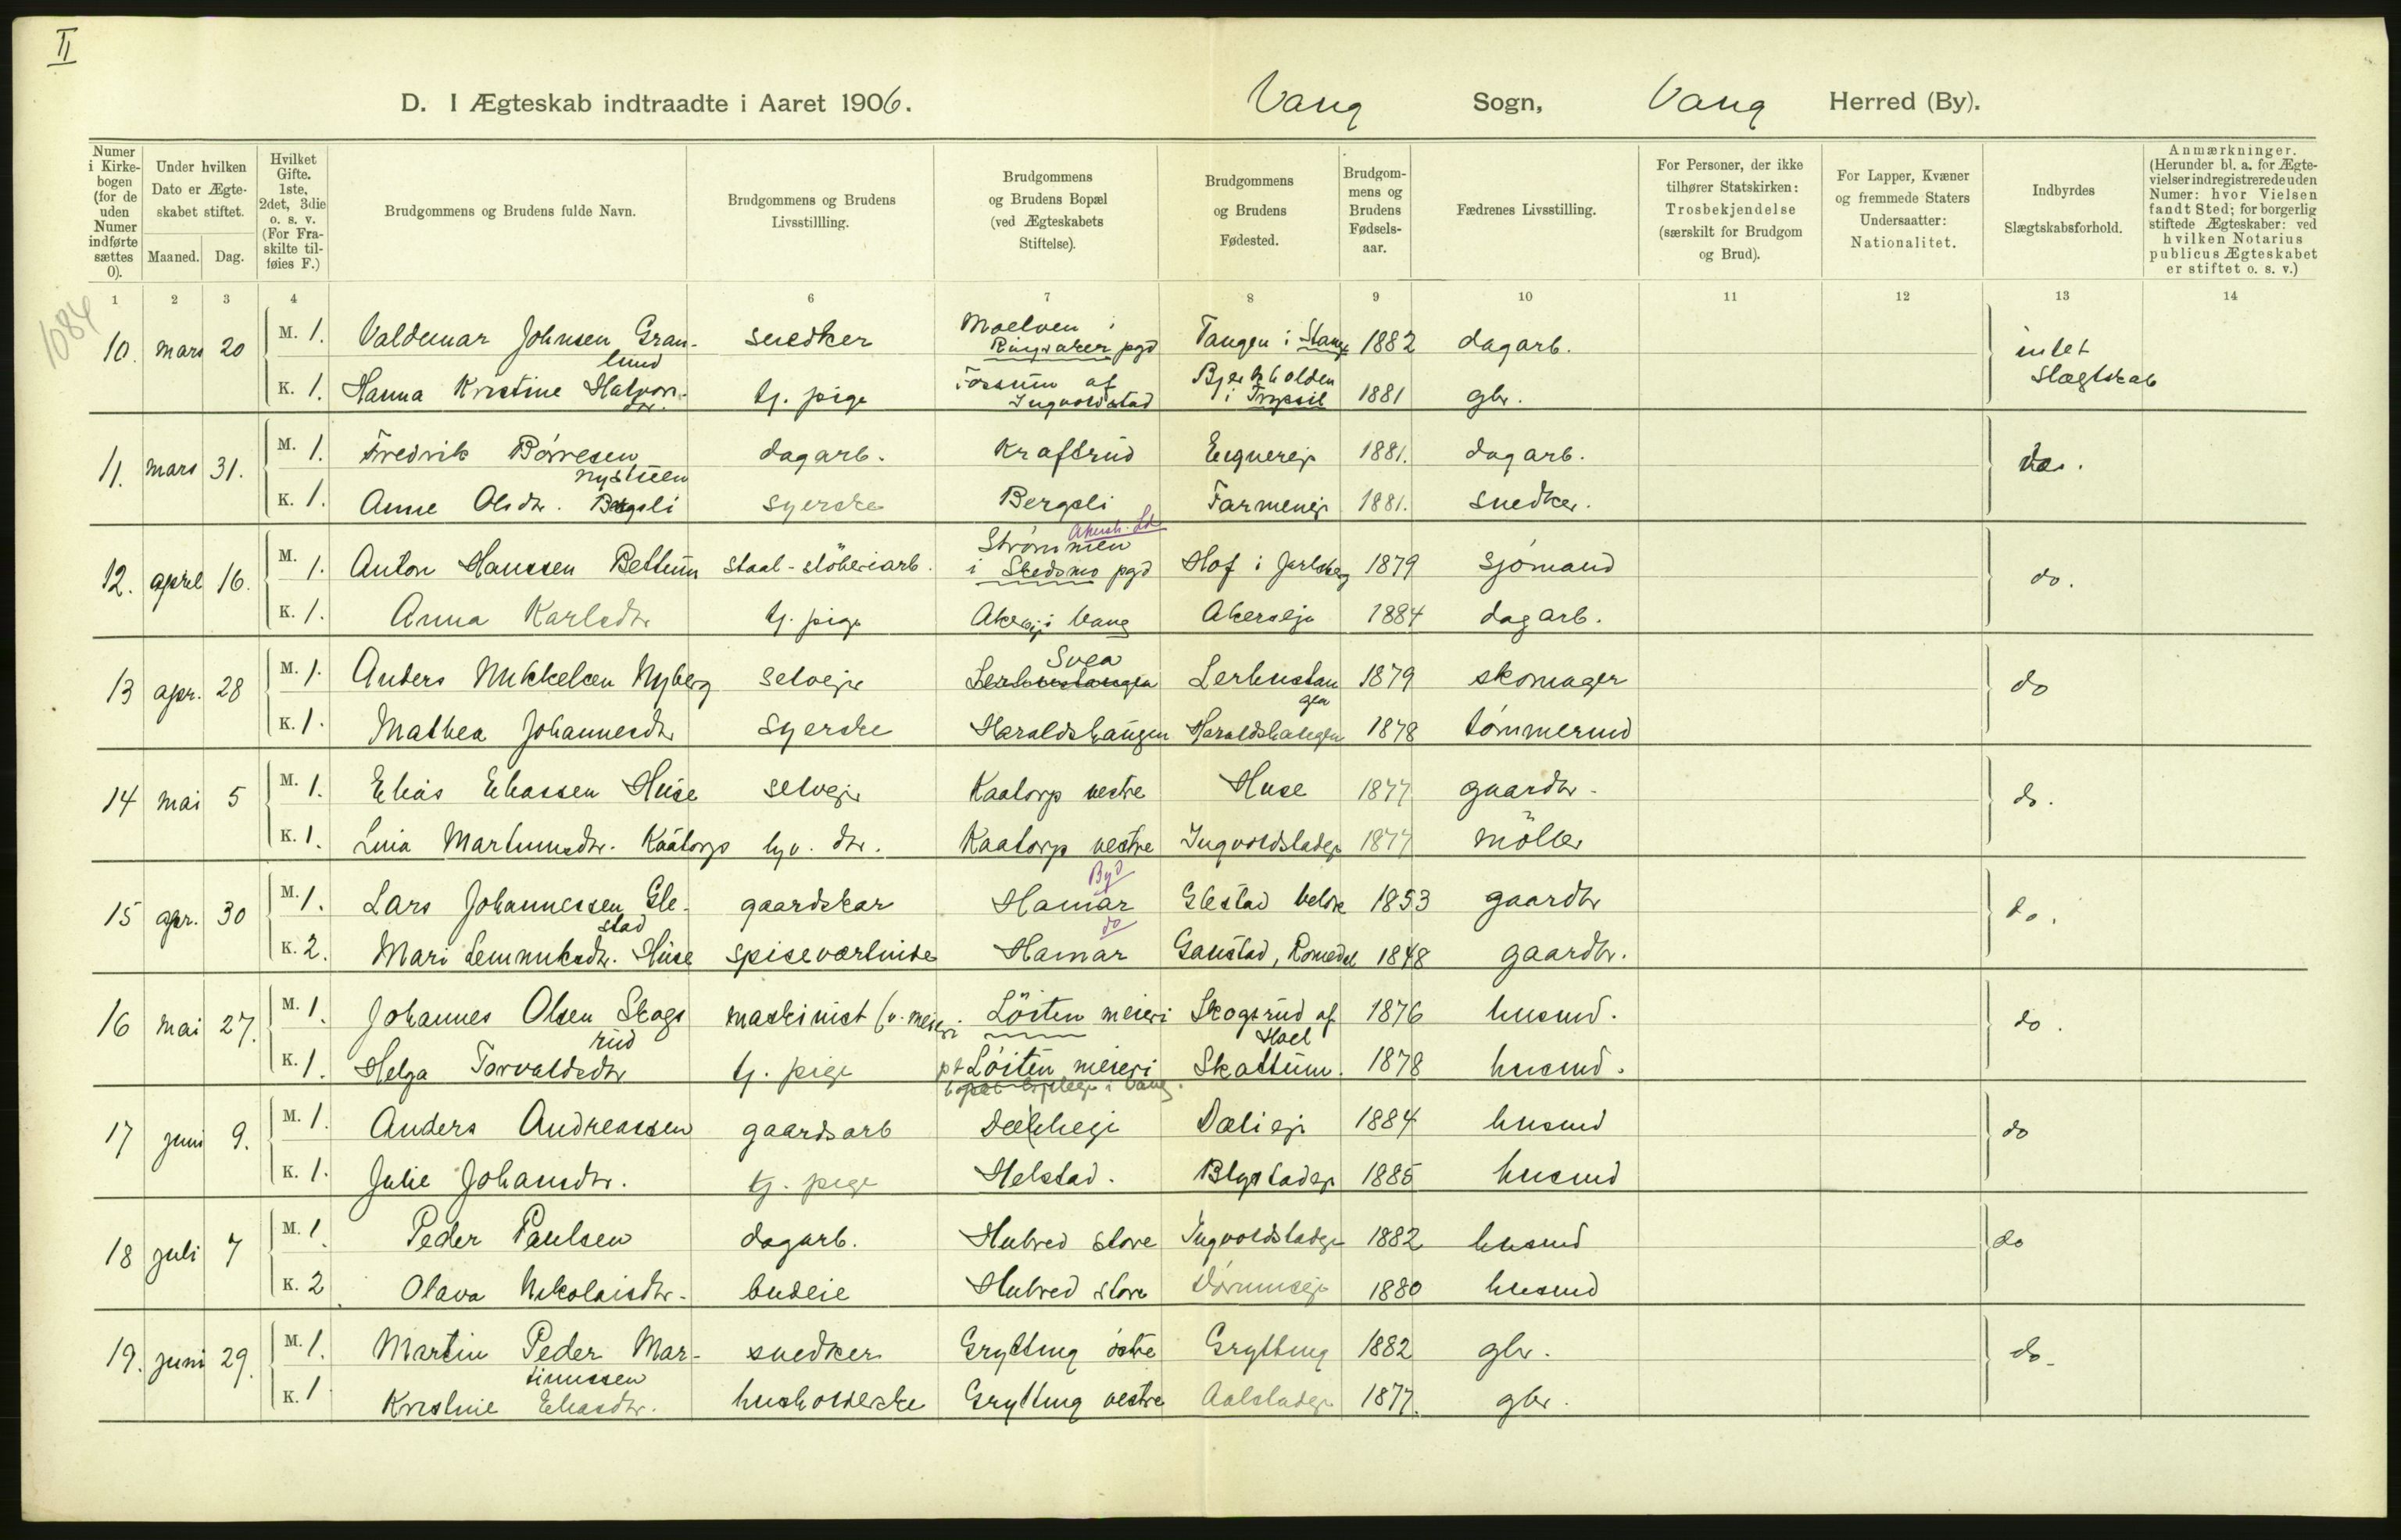 II
D. I Ægteskab indtraadte i Aaret 1906. Vang Sogn, Vang Herred (By).
Numer i Kirkebogen (for de uden Numer indførte sættes 0).
Under hvilken Dato er Ægteskabet stiftet.
Maaned. Dag.
Hvilket Gifte. 1ste, 2det, 3die o. s. v. (For Fraskilte tilføies F.)
Brudgommens og Brudens fulde Navn.
Brudgommens og Brudens Livsstillling.
Brudgommens og Brudens Bopæl (ved Ægteskabets Stiftelse).
Brudgommens og Brudens Fødested.
Brudgommens og Brudens Fødselsaar.
Fædrenes Livsstilling.
For Personer, der ikke tilhører Statskirken: Trosbekjendelse (særskilt for Brudgom og Brud).
For Lapper, Kvæner og fremmede Staters Undersaatter: Nationalitet.
Indbyrdes Slægtskabsforhold.
Anmærkninger. (Herunder bl. a. for Ægtevielser indregistrerede uden Numer: hvor Vielsen fandt Sted; for borgerlig stiftede Ægteskaber: ved hvilken Notarius publicus Ægteskabet er stiftet o. s. v.)
1 2 3 4 6 7 8 9 10 11 12 13 14
1084
10. mars 20 M. 1. Valdemar Johnsen Granlund snedker Moelven i Ringsaker pgd Tangen i Stange 1882 dagarb. intet Slægtskab
K. 1. Hanna Kristine Halvorsdtr. tj. pige Fossum af Ingvoldstad Bjerkholden i Trysil 1881 gbr.
11. mars 31. M. 1. Fredrik Børresen Nystuen dagarb. Kraftrud 1881. dagarb. do.
K. 1. Anne Olsdtr. Bergsli syerske Bergsli Farmenej 1881. snedker.
12. april 16. M. 1. Anton Hanssen Bettum staal-stöberiarb. Strømmen i Skedsmo pgd Akersh. Hof i Jarlsberg 1879 sjømand do.
K. 1. Anna Karlsdtr tj. pige Akersej i Vang Akersej 1884 dagarb.
13 apr. 28 M. 1. Anders Mikkelsen Nyberg selvejer Svea Lerbustangen 1879 skomager do
K. 1. Mathea Johannesdtr syerske Haraldshaugen Haraldshaugen 1878 tømmermd
14 mai 5 M. 1. Elias Eliassen Huse selvejer Kaatorp vestre Huse 1877 gaardbr. do.
K. 1. Lina Martinusdtr. Kaatorp hjv. dtr. Kaatorp vestre Ingvoldstadej 1877 möller
15 apr. 30 M. 1. Lars Johannessen Glestad gaardskar Hamar By Glestad 1853 gaardbr do.
K. 2. Mari Huse spiseværtinde Hamar do Gaustad, Romedal 1848 gaardbr.
16 mai 27. M. 1. Johannes Olsen Skogsrud maskinist (v. meieri Löiten meieri Skogsrud af Hoel 1876 husmd. do.
K. 1. Helga Torvaldsdtr tj. pige pt Löiten meieri Skattum. 1878 husmd.
17 juni 9. M. 1. Anders Andreassen gaardsarb Dæliej 1884 husmd do
K. 1. Julie Johansdtr. tj. pige Helstad. Blystadej 1885 husmd
18 juli 7 M. 1 Peder Paulsen dagarb. Hubred store Ingvoldstadej 1882 husmd do
K. 2 Olava Nikolaisdtr. budeie Hubred store 1880 husmd
19. juni 29. M. 1. Martin Peder Martinussen snedker Grytting østre Grytting 1882 gbr. do.
K. 1 Kristine Eliasdtr. husholderske Grytting vestre Aalstadej 1877. gbr.